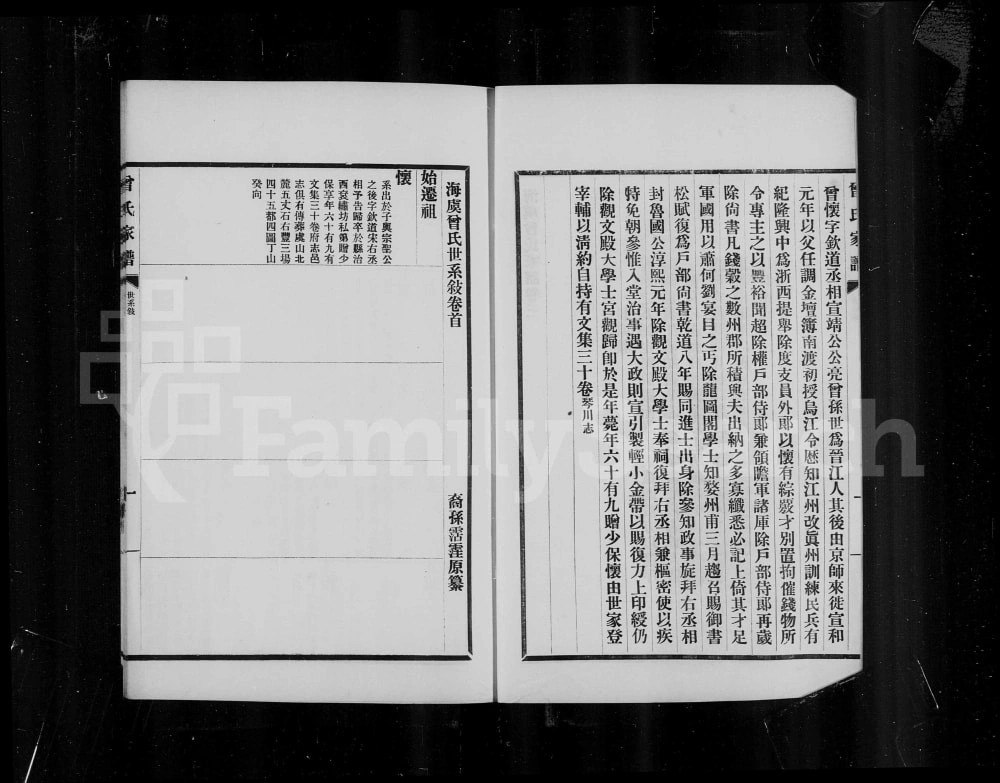 曾氏家譜
一
曾懷字欽道丞相宣靖公公亮曾孫世爲晉江人其後由京師來徙宣和
元年以父任調金壇簿南渡初授烏江令歷知江州改眞州訓練民兵有
紀隆興中爲浙西提舉除度支員外郞以懷有綜覈才別置拘催錢物所
令專主之以豐裕聞超除權戶部侍郞兼領贍軍諸庫除戶部侍郞再歲
除尙書凡錢穀之數州郡所積與夫出納之多寡纖悉必記上倚其才足
軍國用以蕭何劉宴目之丐除龍圖閣學士知婺州甫三月趨召賜御書
松賦復爲戶部尙書乾道八年賜同進士出身除參知政事旋拜右丞相
封魯國公淳熙元年除觀文殿大學士奉祠復拜右丞相兼樞密使以疾
特免朝參惟入堂治事遇大政則宣引製輕小金帶以賜復力上印綬仍
除觀文殿大學士宮觀歸卽於是年薨年六十有九贈少保懷由世家登
宰輔以淸約自持有文集三十卷琴川志
海虞曾氏世系敍卷首
裔孫霑霔原纂
始遷祖
懷
系出於子輿宗聖公
之後字欽道宋右丞
相予告歸卒於縣治
西袞繡坊私第贈少
保享年六十有九有
文集三十卷府志邑
志俱有傳葬虞山北
麓五丈石右豐三場
四十五都四圖丁山
癸向
曾氏家譜
世系敍
一
FamilySearch